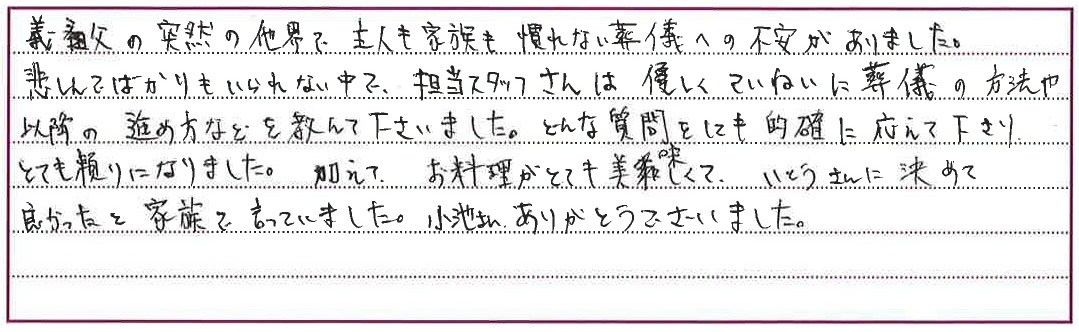 義父の突然の他界で主人も家族も慣れない葬儀への不安がありました。
悲しんでばかりもいられない中で、担当スタッフさんは優しくていねいに葬儀の方法や
以降の進め方などを教えて下さいました。どんな質問をしても的確に応えて下さり、
とても頼りになりました。加えて、お料理がとても美味しくて、いとうさんに決めて
良かったと家族で言っていました。小池さん、ありがとうございました。